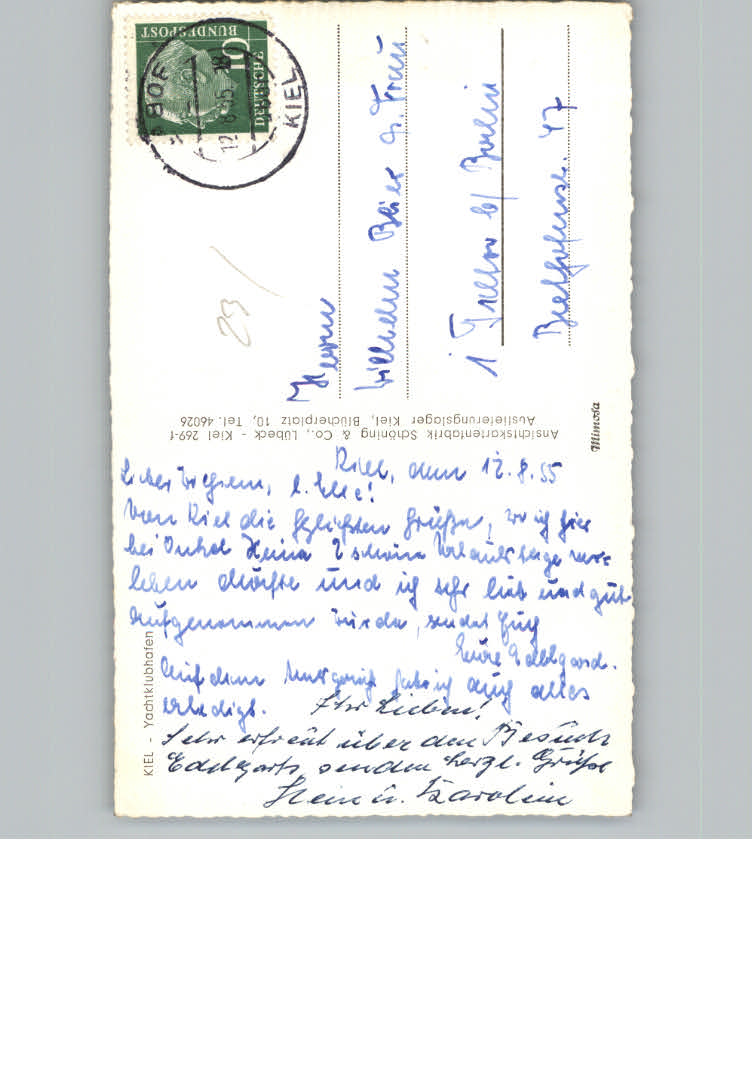 DEUTSCHE
BUNDESPOST
10
KIEL
12.8.55
23
Herrn
Wilhelm Baier u. Frau
1 Teltow b/ Berlin
Beethovenstr. 47
Ansichtskartenfabrik Schöning & Co., Lübeck - Kiel 269-f
Auslieferungslager Kiel, Blücherplatz 10, Tel. 46026
Mimosa
KIEL - Yachtklubhafen
Kiel, den 12.8.55
Liebes
Von Kiel die herzlichsten Grüße, wo ich hier
bei Onkel Heina 2 schöne Urlaubstage ver-
leben durfte und ich sehr lieb und gut
aufgenommen wurde, sendet Euch
Eure Edelgard.
Auf dem habe ich auch alles
erledigt.
Ihr Lieben!
Sehr erfreut über den Besuch
Edelgarts senden herzl. Grüße
Hein u. Karolin